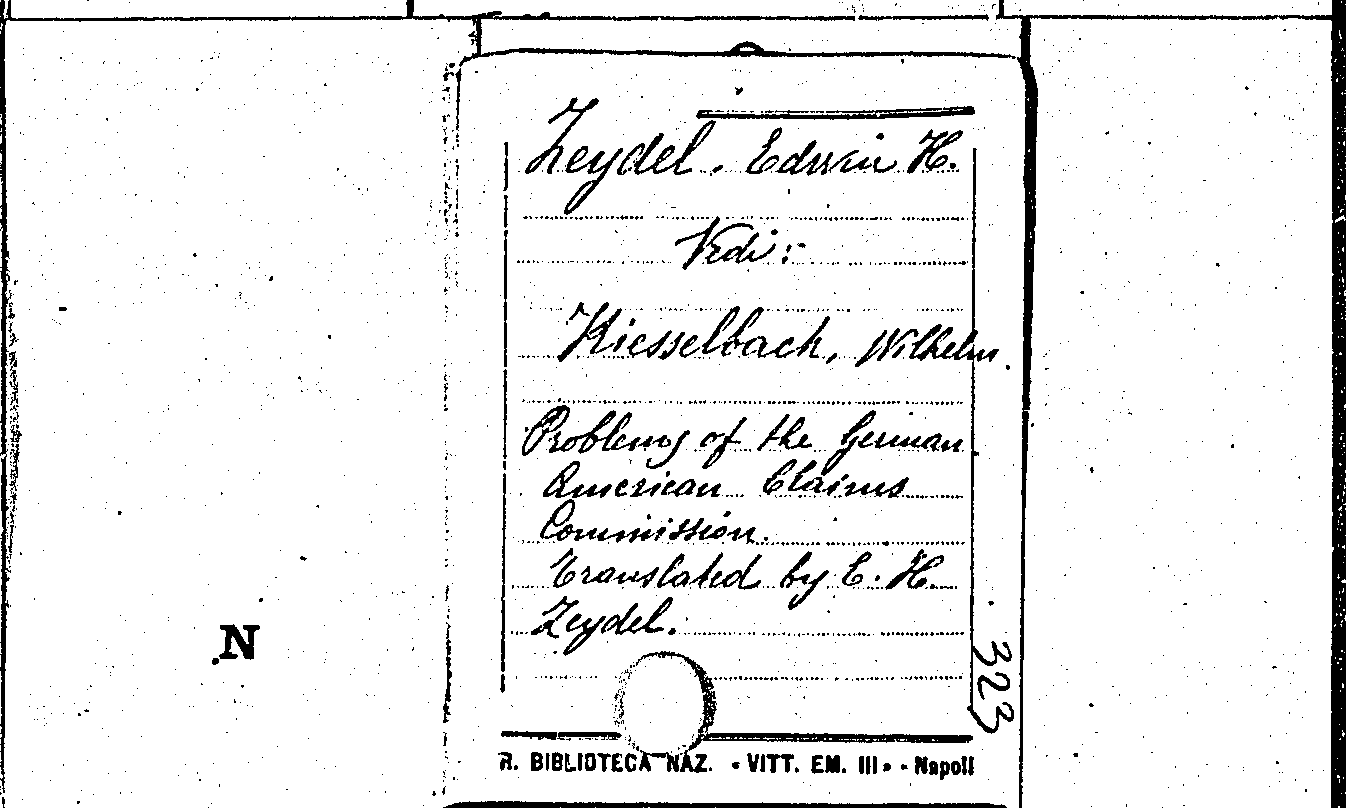 Zeydel, Edwin H.
Vedi:
Kiesselbach, Wilhelm.
Problems of the German
American Claims
Commission.
Translated by E. H.
Zeydel.
323
N
R. BIBLIOTECA NAZ. «VITT. EM. III» - Napoli